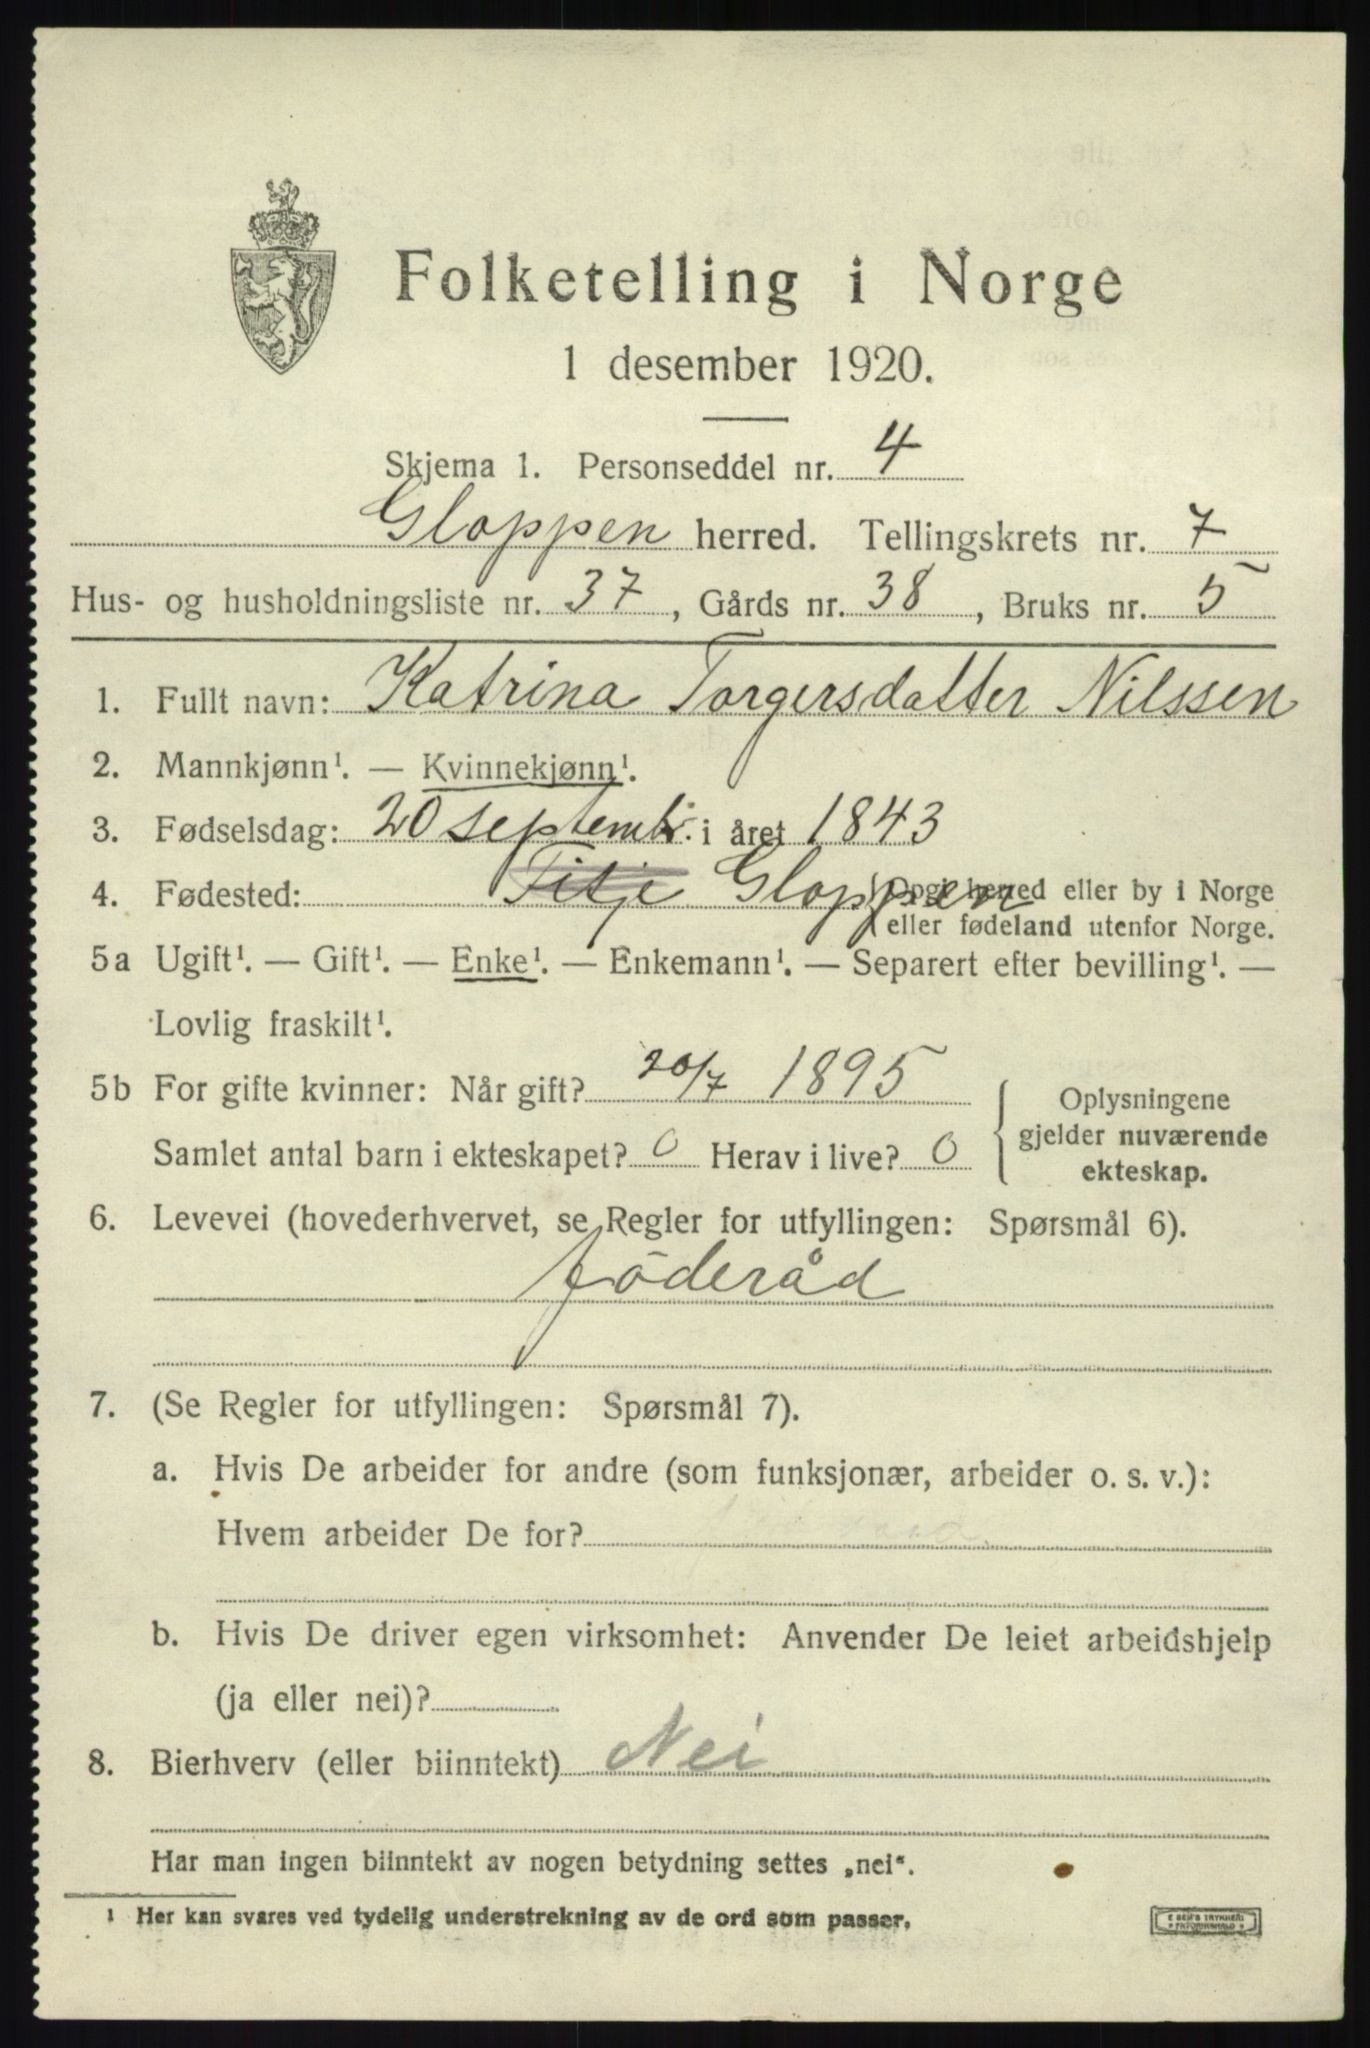 Folketelling i Norge
1 desember 1920.
Skjema 1. Personseddel nr. 4
Gloppen herred. Tellingskrets nr. 7
Hus- og husholdningsliste nr. 37, Gårds nr. 38, Bruks nr. 5
1. Fullt navn: Katrina Torgersdatter Nilssen
2. Mannkjønn¹. — Kvinnekjønn¹.
3. Fødselsdag: 20 septembr. i året 1843
4. Fødested: Gloppen (Opgi herred eller by i Norge
eller fødeland utenfor Norge.
5a Ugift¹. — Gift¹. — Enke¹. — Enkemann¹. — Separert efter bevilling¹. —
Lovlig fraskilt¹.
5b For gifte kvinner: Når gift? 20/7 1895
Samlet antal barn i ekteskapet? 0 Herav i live? 0
Oplysningene
gjelder nuværende
ekteskap.
6. Levevei (hovederhvervet, se Regler for utfyllingen: Spørsmål 6).
föderåd
7. (Se Regler for utfyllingen: Spørsmål 7).
a. Hvis De arbeider for andre (som funksjonær, arbeider o. s. v.):
Hvem arbeider De for?
b. Hvis De driver egen virksomhet: Anvender De leiet arbeidshjelp
(ja eller nei)?
8. Bierhverv (eller biinntekt) Nei
Har man ingen biinntekt av nogen betydning settes „nei“.
¹ Her kan svares ved tydelig understrekning av de ord som passer.